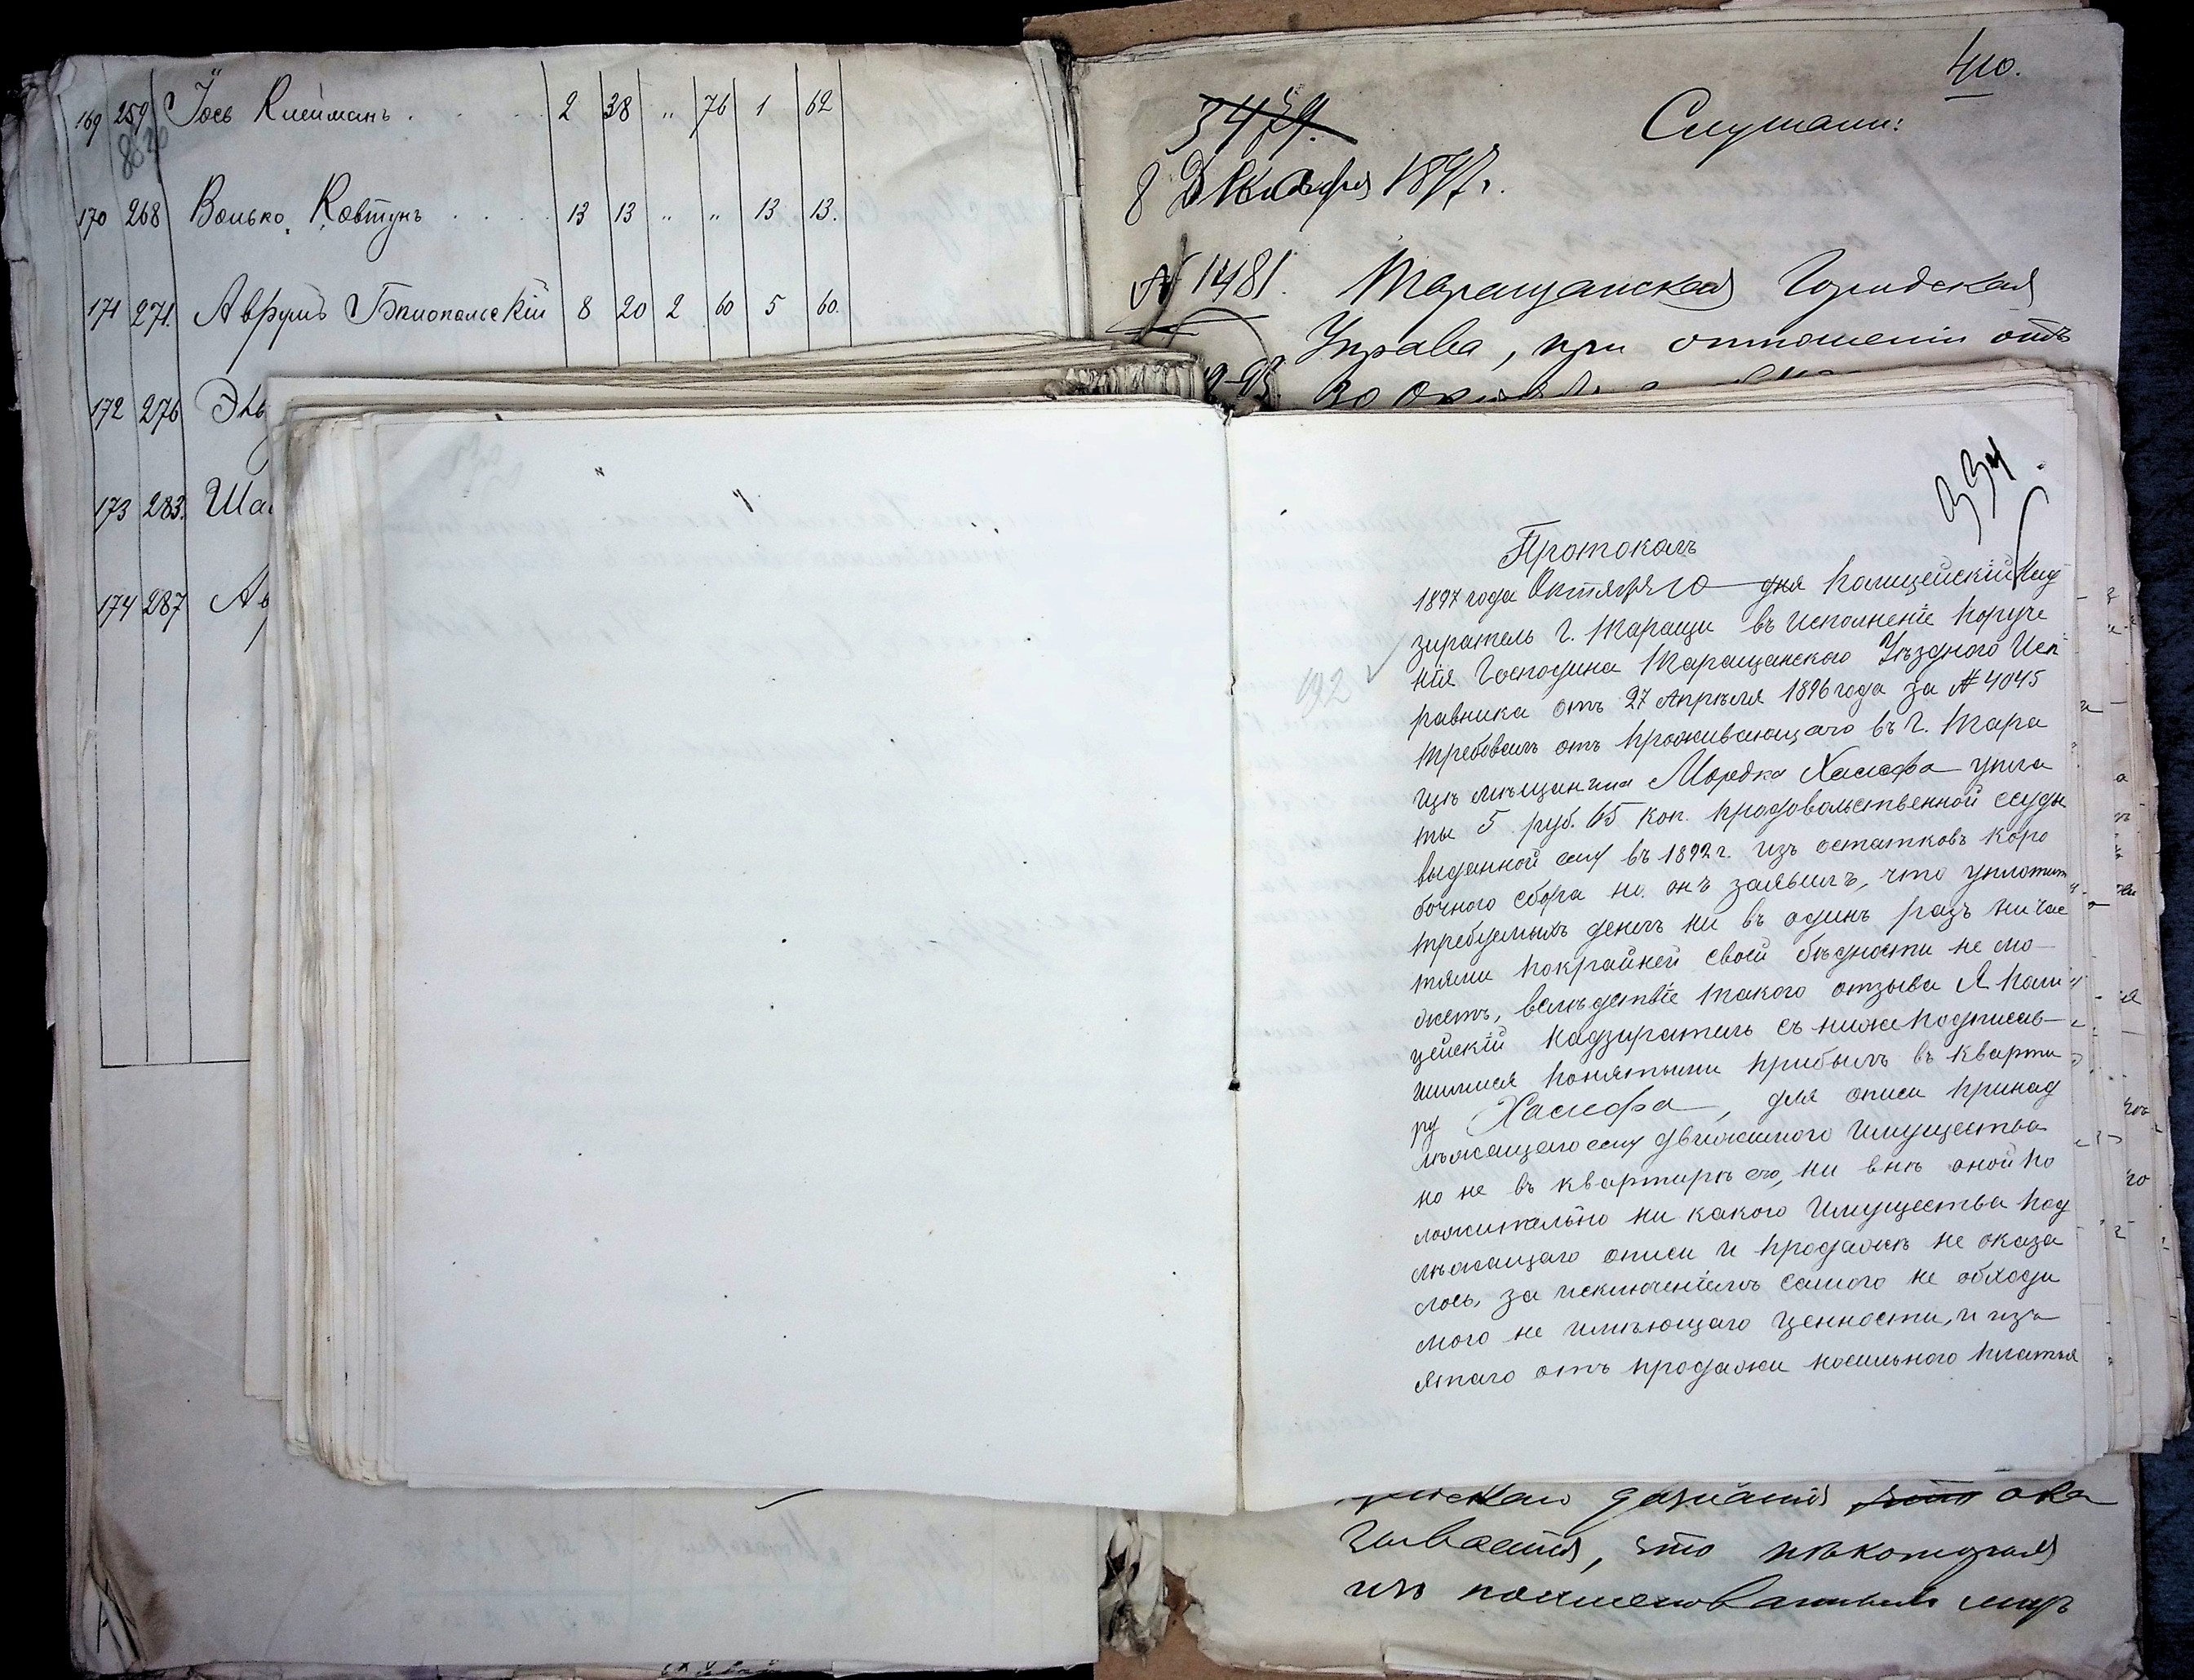 169 259 Іось Клейманъ . . . . 2 38 „ 76 1 62
170 268 Волько Ковтунъ . . . . 13 13 „ „ 13 13.
171 271. Аврумъ Бѣлопольскій 8 20 2 60 5 60.
172 276
173 283. Ша
174 287 Ав
410.
3479.
Слушали:
8 Декабря 1897 г.
№ 1481. Таращанская Городская
Управа, при отношеніи отъ
30 Октября
334
Протоколъ
1897 года Октября 10 дня Полицейскій Над
зиратель г. Таращи въ исполненіе поруче
нія Господина Таращанскаго Уѣзднаго Исп
равника отъ 27 Апрѣля 1896 года за № 4045
требовалъ отъ проживающаго въ г. Тара
щѣ мѣщанина Мордка Халефа упла
ты 5 руб. 65 коп. продовольственной ссуды
выданной ему въ 1892 г. изъ остатковъ коро
бочного сбора но онъ заявилъ, что уплатит
требуемыхъ денегъ ни въ одинъ разъ ни час
тями покрайней своей бѣдности не мо-
жетъ, вслѣдствіе такого отзыва Я Поли
цейскій Надзиратель съ нижеподписав-
шимися понятыми прибылъ въ кварти
ру Халефа, для описи принад
лѣжащаго ему движимого имущества
но не въ квартирѣ его, ни внѣ оной по
ложитально ни какого имущества под
лѣжащаго описи и продажѣ не оказа
лось, за исключеніемъ самого не обходи
мого не имѣющаго ценности, и изъ
ятаго отъ продажи носильного платья
дознанія ока
зывается, что нѣкоторые
изъ поименованныхъ